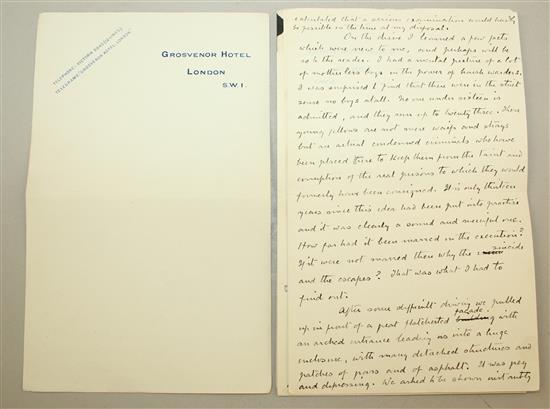 TELEPHONE: VICTORIA
TELEGRAMS "GROSVENOR HOTEL LONDON"
GROSVENOR HOTEL
LONDON
S.W.1.
calculated that a serious examination would hardly
be possible in the time at my disposal.
On the drive I learned a few facts
which were new to me, and perhaps will be
so to the reader. I had a mental picture of a lot
of motherless boys in the power of harsh warders.
I was surprised to find that there were in the strict
sense no boys at all. No one under sixteen is
admitted, and they run up to twenty three. These
young fellows are not mere waifs and strays
but are actual condemned criminals who have
been placed there to keep them from the taint and
corruption of the real prisons to which they would
formerly have been consigned. It is only thirteen
years since this idea had been put into practice
and it was clearly a sound and merciful one.
How far had it been marred in the execution?
If it were not marred then why the suicide
and the escapes? That was what I had to
find out.
After some difficult driving we pulled
up in front of a great building façade with
an arched entrance leading us into a huge
enclosure, with many detached structures and
patches of grass and of asphalt. It was grey
and depressing. We asked to be shown instantly